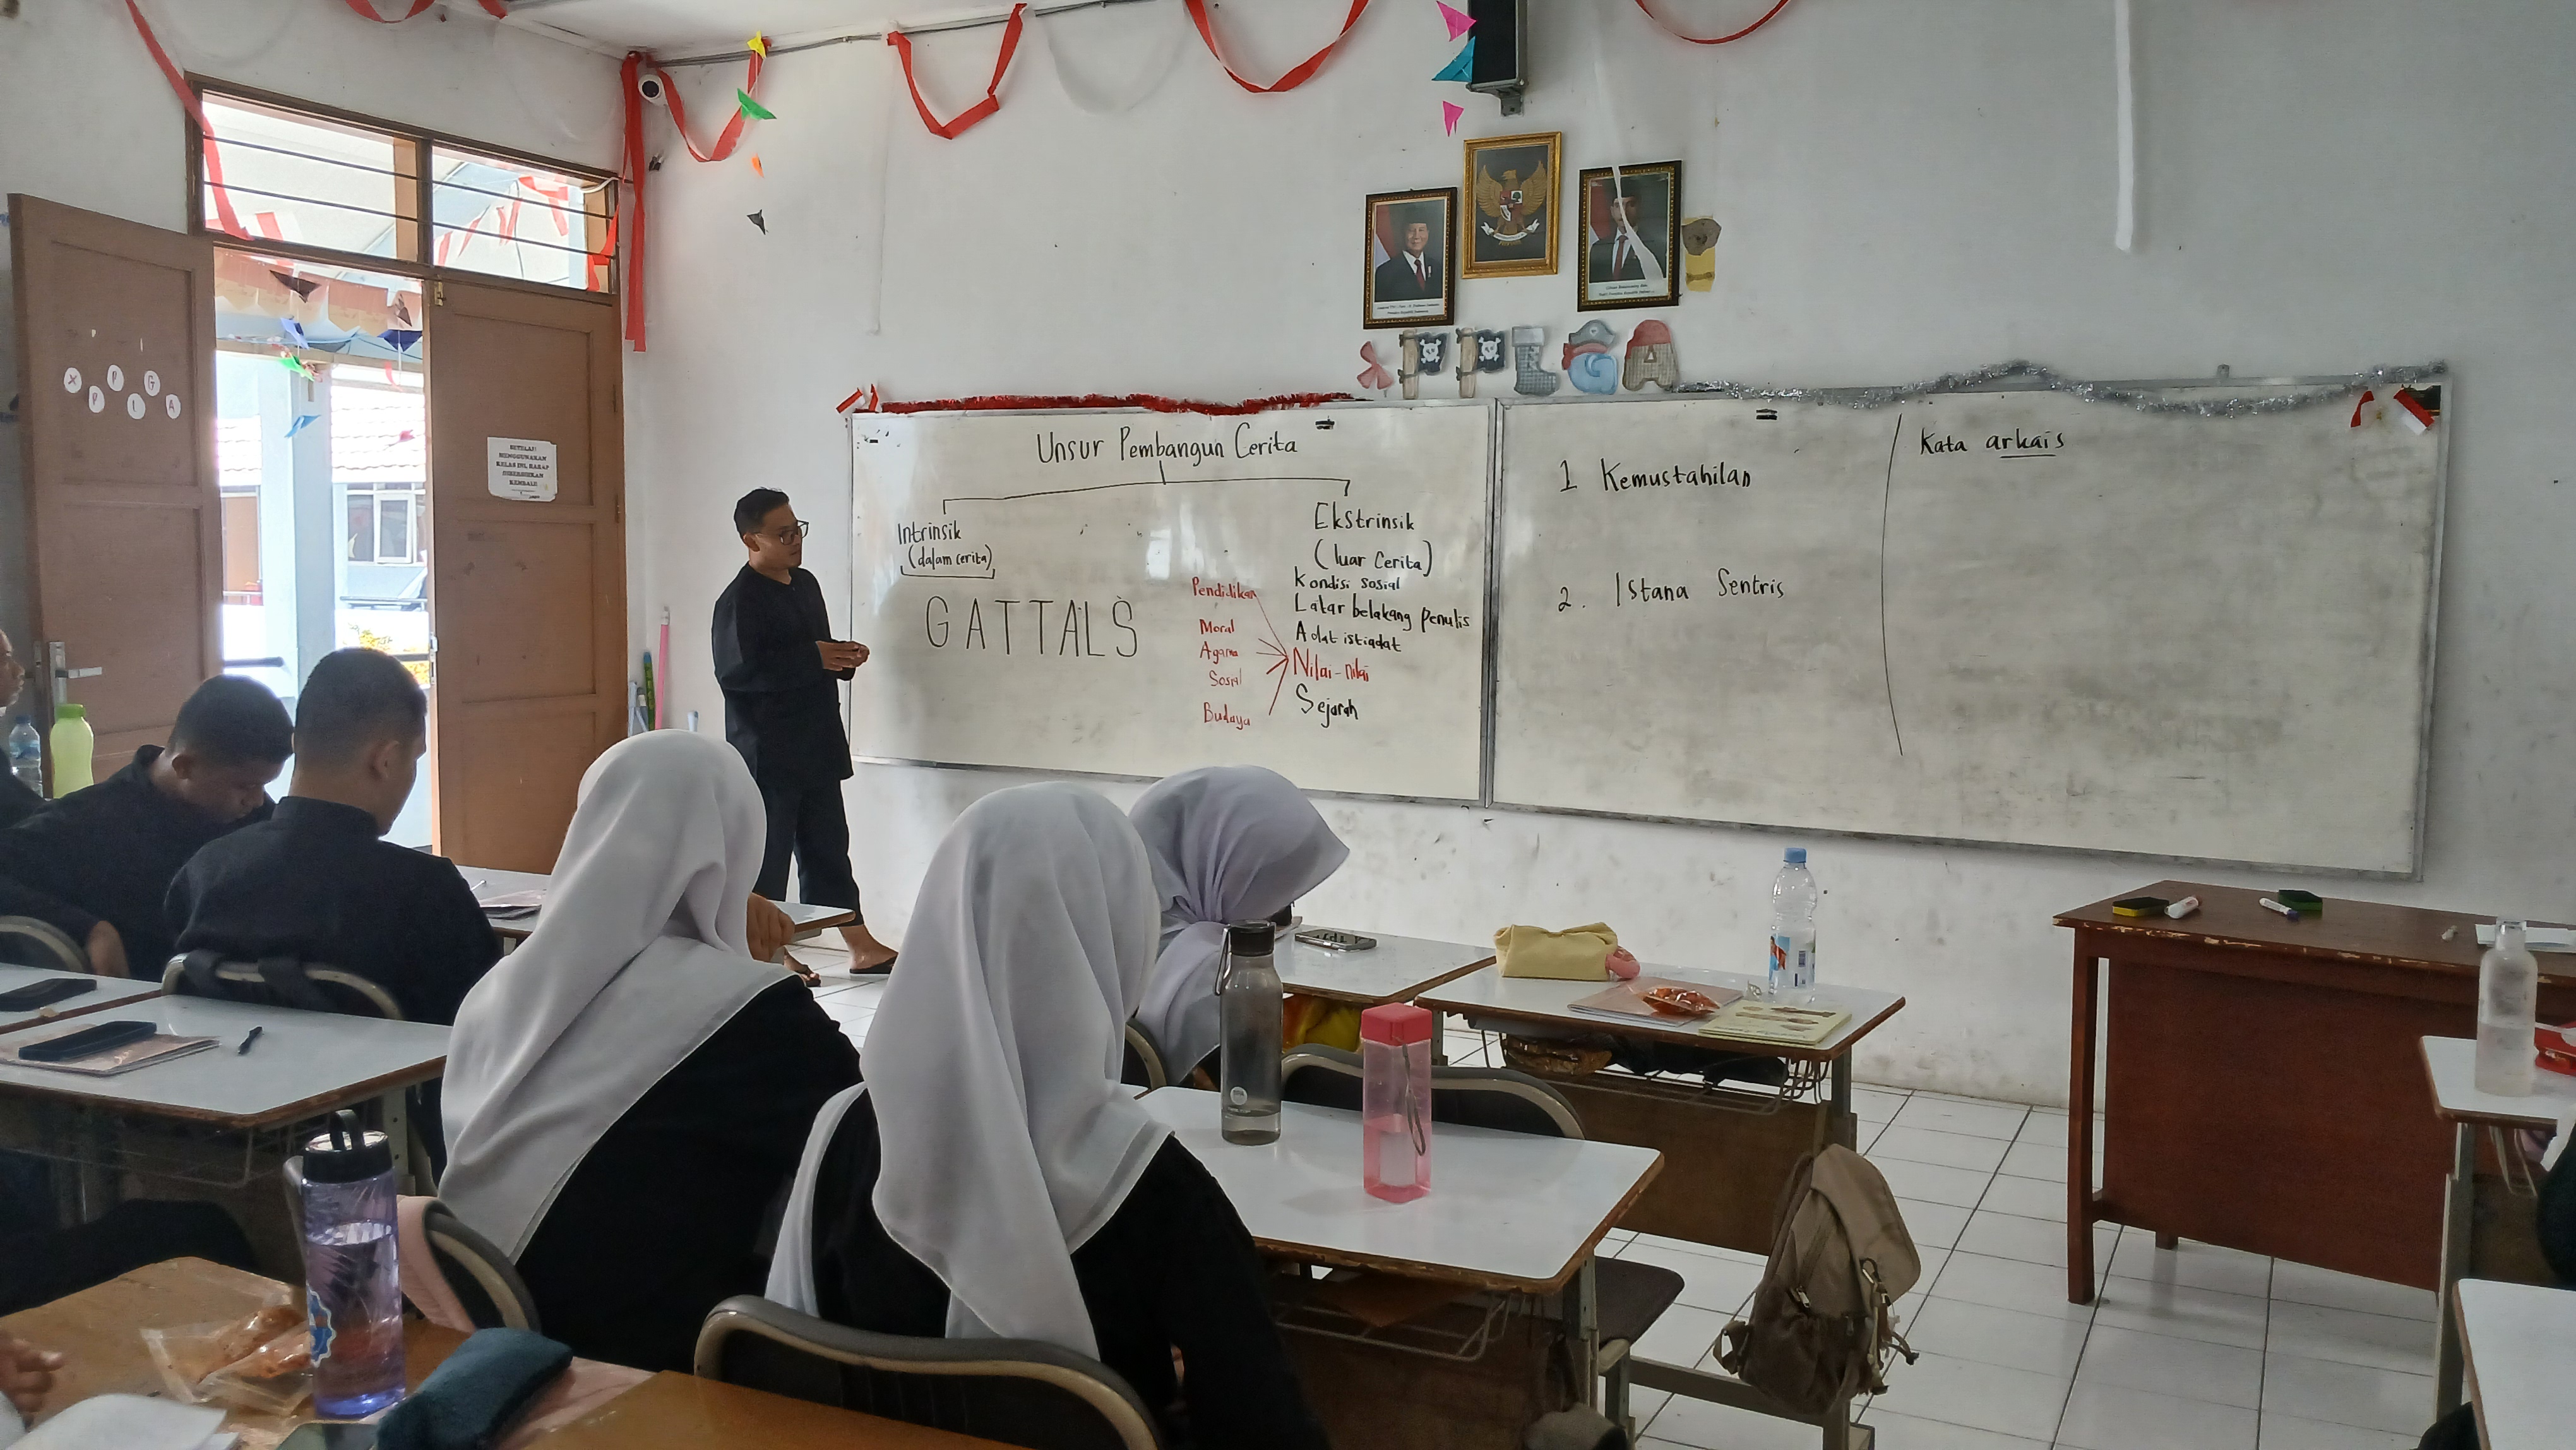 X P P L G A
SETELAH
MENGGUNAKAN
KELAS INI, HARAP
DIBERSIHKAN
KEMBALI
XPPLGA
Unsur Pembangun Cerita
Intrinsik
(dalam cerita)
GATTALS
Ekstrinsik
(luar Cerita)
Kondisi sosial
Latar belakang penulis
Adat istiadat
Nilai-nilai
Sejarah
Pendidikan
Moral
Agama
Sosial
Budaya
1 Kemustahilan
2. Istana Sentris
Kata arkais